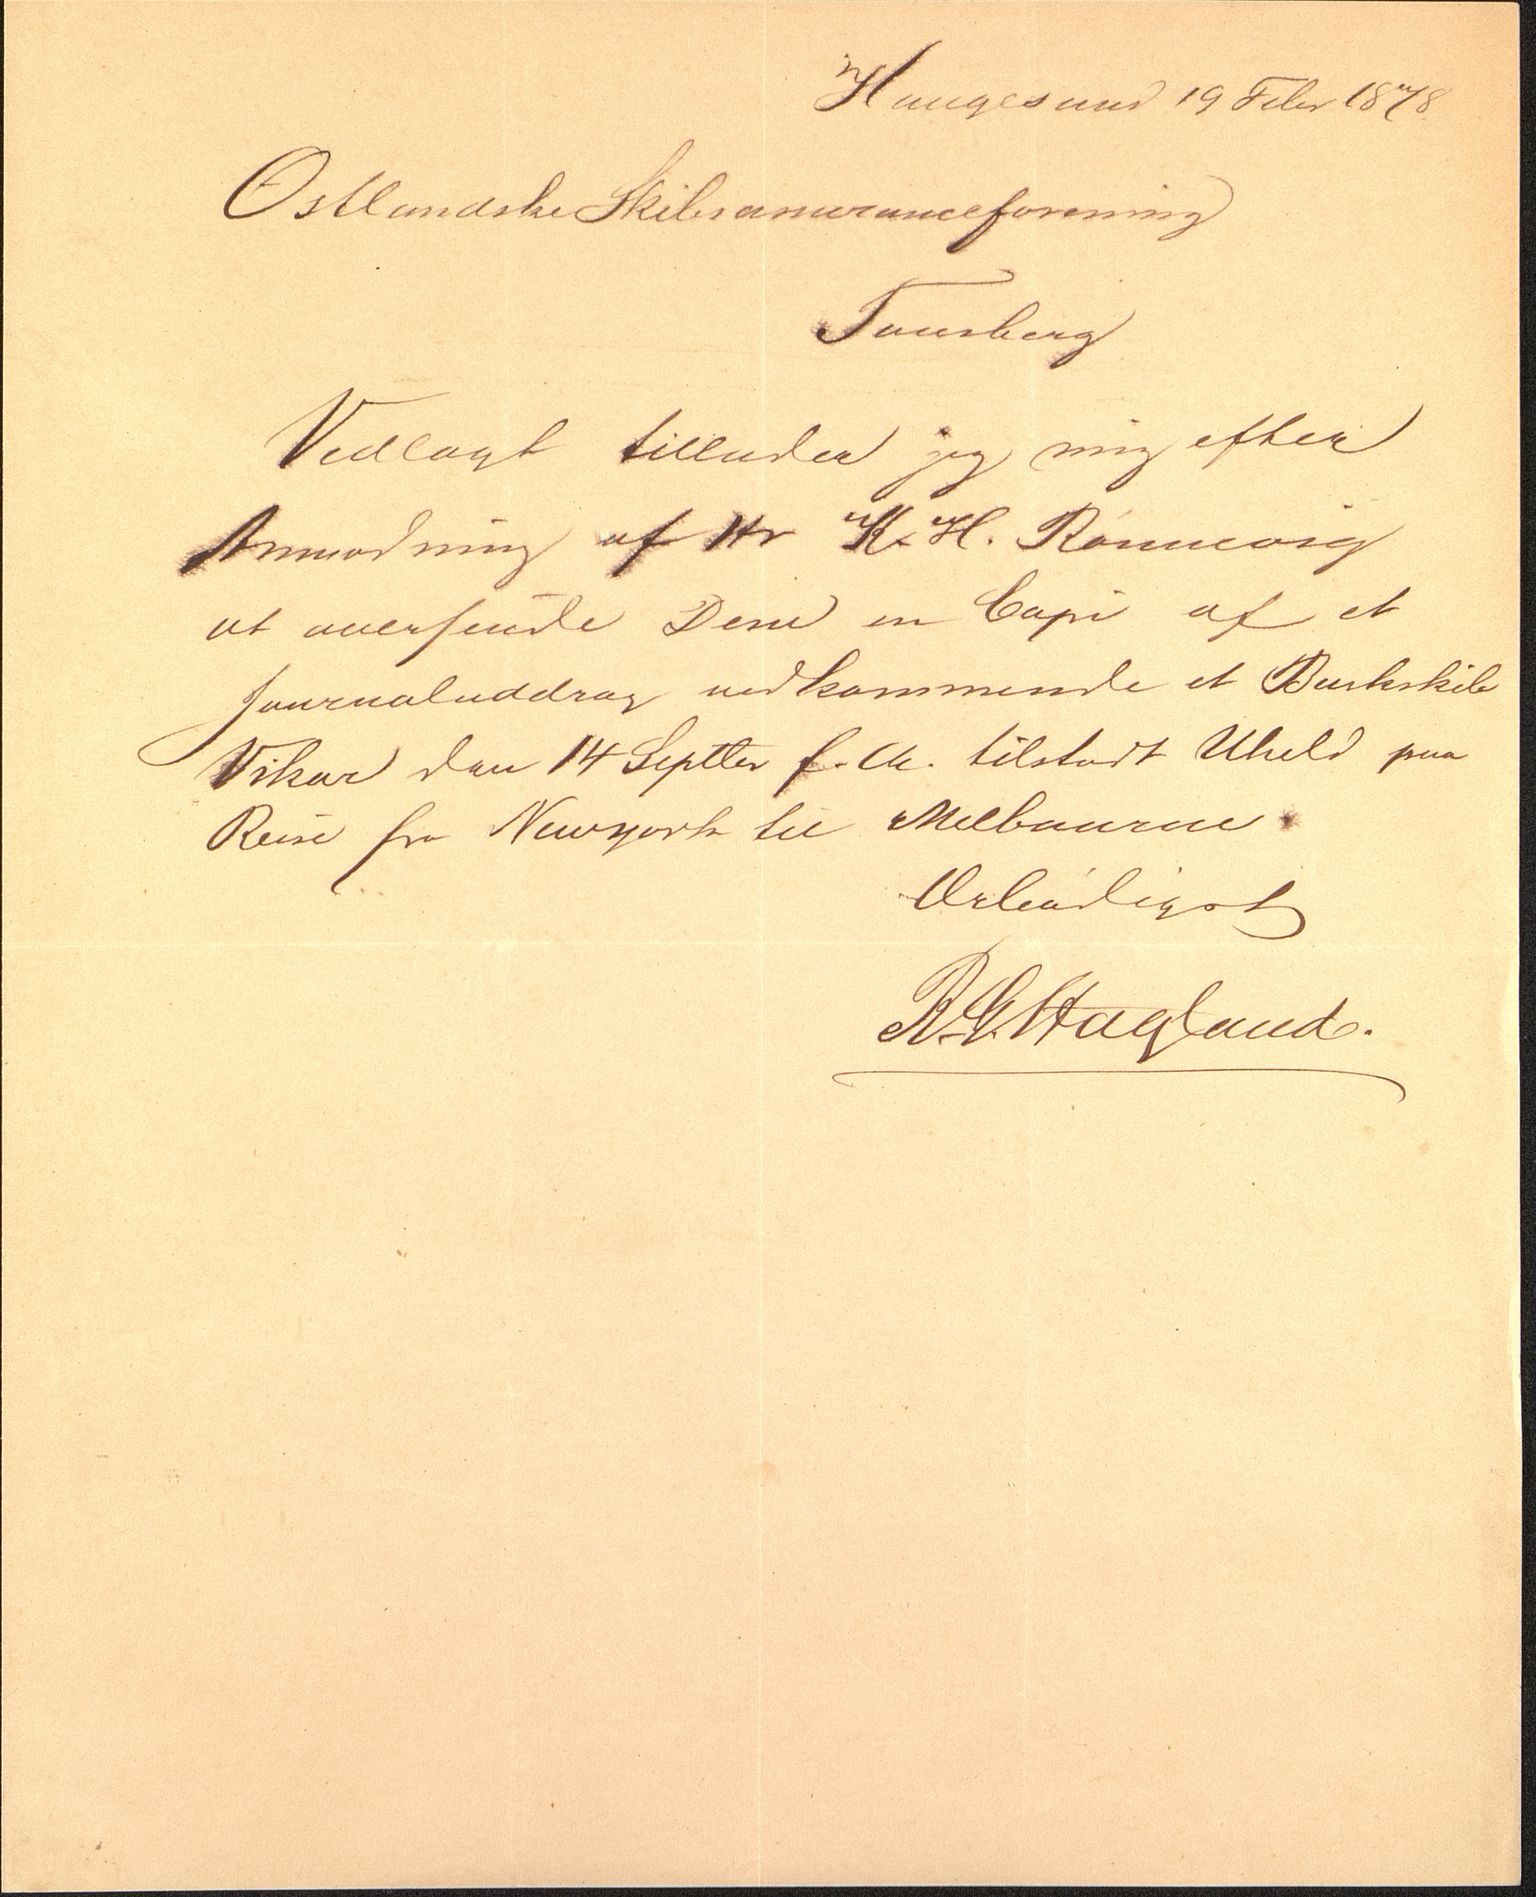 Haugesund 19 Febr 1878
Østlandske Skibsassuranceforening
Tønsberg
Vedlagt tillader jeg mig efter
Anmodning af Hr K. H. Rönnevig
at oversende Dem en Copi af et
Journaluddrag vedkommende et Barkskib
Vikar den 14 Septbr f. A. tilstødt Uheld paa
Reise fra Newyork til Melbourne.
Ærbödigst
R. G. Hagland.